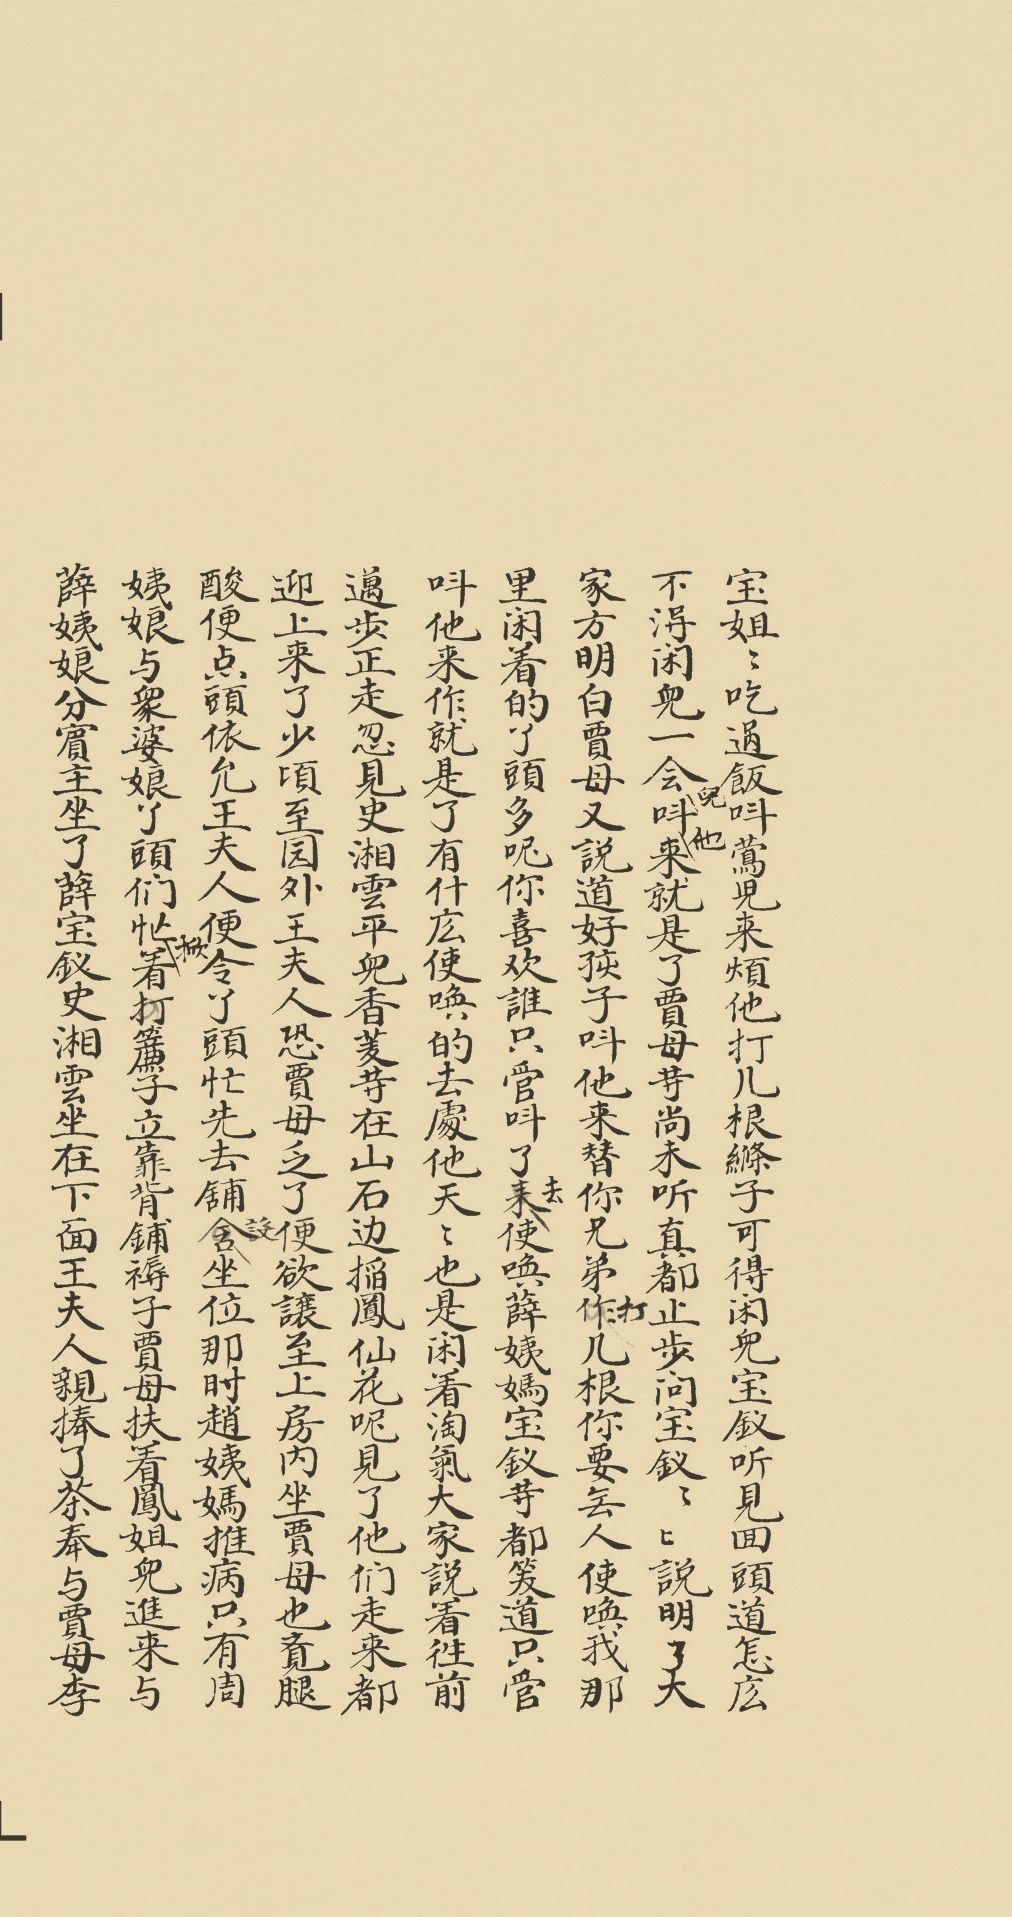 宝姐〻吃過飯呌鶯児来煩他打儿根縧子可得闲皃宝釵听見囬頭道怎庅
不淂闲皃一会兒呌他来就是了賈母䒭尚未听真都止步问宝釵〻〻說明了大
家方明白賈母又説道好孩子呌他来替你兄弟作打儿根你要無人使唤我那
里闲着的丫頭多呢你喜欢誰只管呌了来去使唤薛姨媽宝釵䒭都笑道只管
呌他来作就是了有什庅使唤的去處他天〻也是闲着淘氣大家説着徃前
邁步正走忽見史湘雲平皃香菱䒭在山石边搯鳳仙花呢見了他们走来都
迎上来了少頃至园外王夫人恐賈母乏了便欲譲至上房内坐賈母也覔腿
酸便点頭依允王夫人便令丫頭忙先去舖含設坐位那时趙姨媽推病只有周
姨娘与衆婆娘丫頭们忙着打掀簾子立靠背鋪褥子賈母扶着鳳姐皃進来与
薛姨娘分賔主坐了薛宝釵史湘雲坐在下面王夫人親捧了茶奉与賈母李